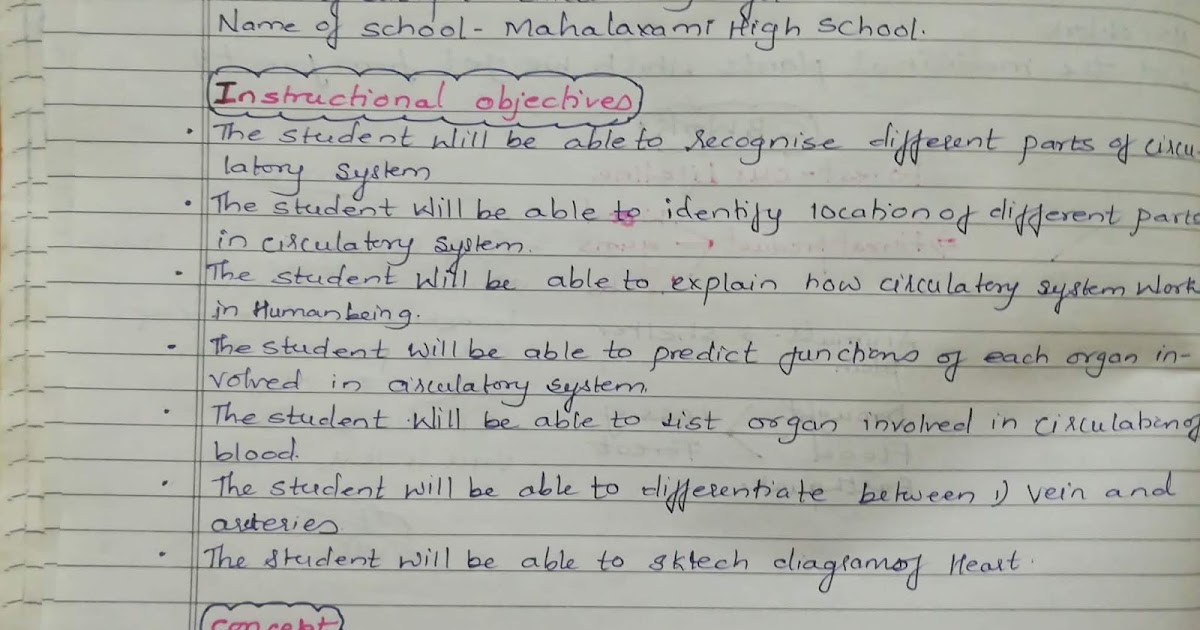 Name of school - Mahalaxami High School.
Instructional objectives
• The student will be able to recognise different parts of circu-
latory system
• The student will be able to identify location of different parts
in circulatory system.
• The student will be able to explain how circulatory system work
in Human being.
• The student will be able to predict functions of each organ in-
volved in circulatory system.
• The student will be able to list organ involved in circulating of
blood.
• The student will be able to differentiate between 1) vein and
arteries
• The student will be able to sktech diagram of Heart.
concept